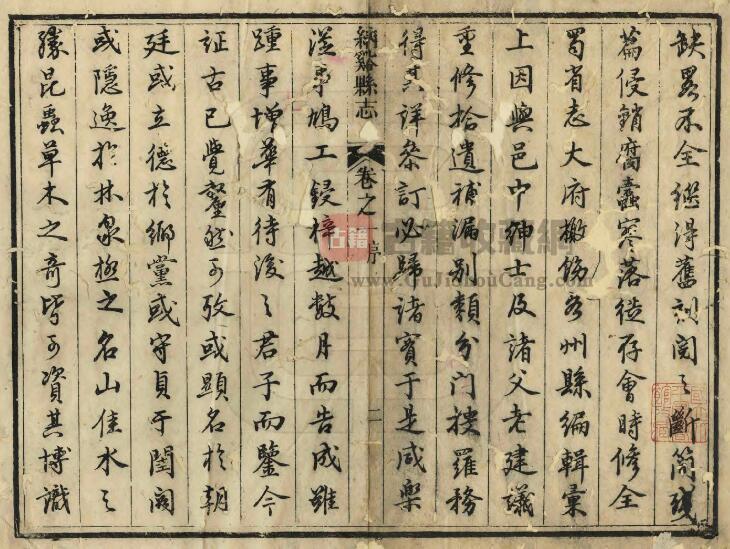 缺畧不全继得舊刻閱之斷简残
篇侵銷腐蠹寥落徒存會時修全
蜀省志大府檄飭各州縣編輯彙
上因與邑中紳士及諸父老建議
重修拾遺補漏别類分門搜羅務
得其详条訂必歸諸實于是咸樂
納谿縣志 卷之 序 二
従事鳩工鋟梓越数月而告成雖
踵事增華有待後之君子而鑒今
証古已覺釐然可攷或顯名於朝
廷或立德於鄉黨或守貞于閨閫
或隐逸於林泉極之名山佳水之
緣昆蟲草木之奇皆可資其博識
古籍
古籍收藏網
www.GuJiShouCang.com